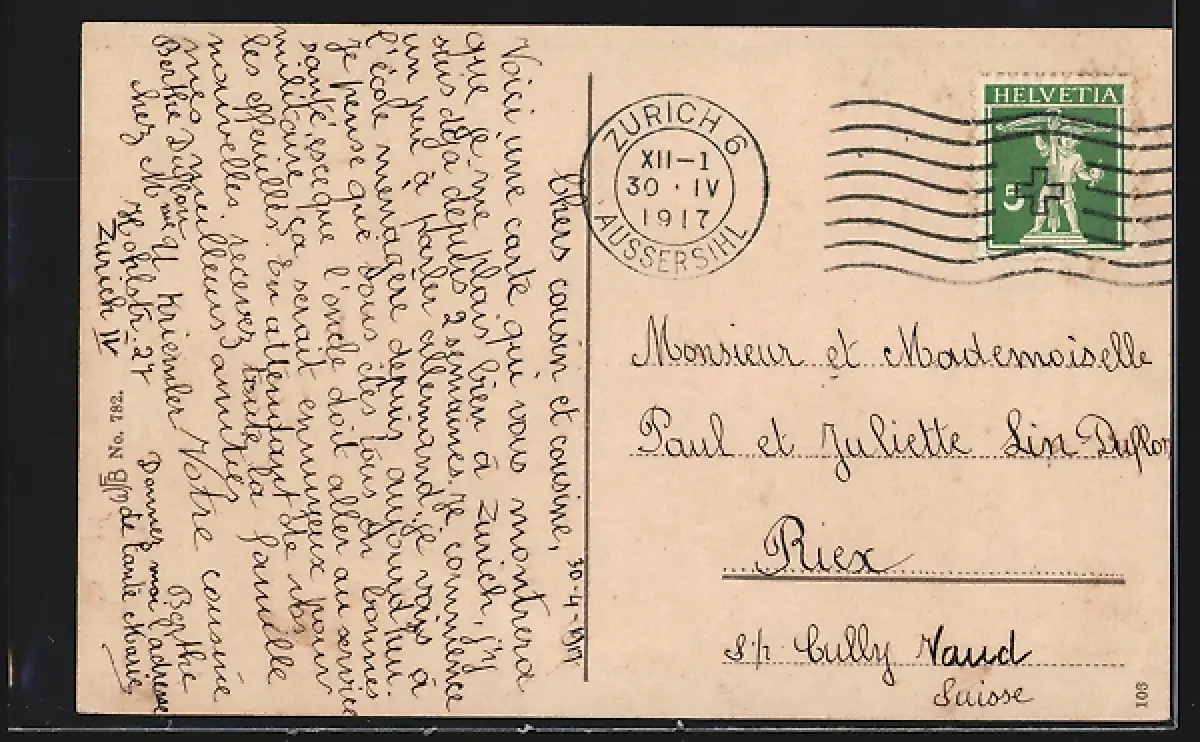 30-4-1917
Chers cousin et cousine,
Voici une carte qui vous montrera
que je me plais bien à Zurich, j'y
suis déja depuis 2 semaines, je commence
un peu à parler allemand, je vais à
l'école menagère depuis aujourd'hui.
Je pense que vous êtes tous en bonnes
santé, esceque l'oncle doit aller au service
militaire ça serait ennuyeux pour
les effeuilles. En attendant de vos
nouvelles, recevez toute la famille
mes meilleurs amitiés Votre cousine
Berthe
Berthe Duflon
chez Mme
Hohlstr. 27
Zurich IV
Donnez mon adresse
de tante Marie
No. 782.
ZURICH 6
XII-1
30 · IV
1917
AUSSERSIHL
HELVETIA
5
Monsieur et Mademoiselle
Paul et Juliette Lin-Duflon
Riex
s/h. Cully Vaud
Suisse
103